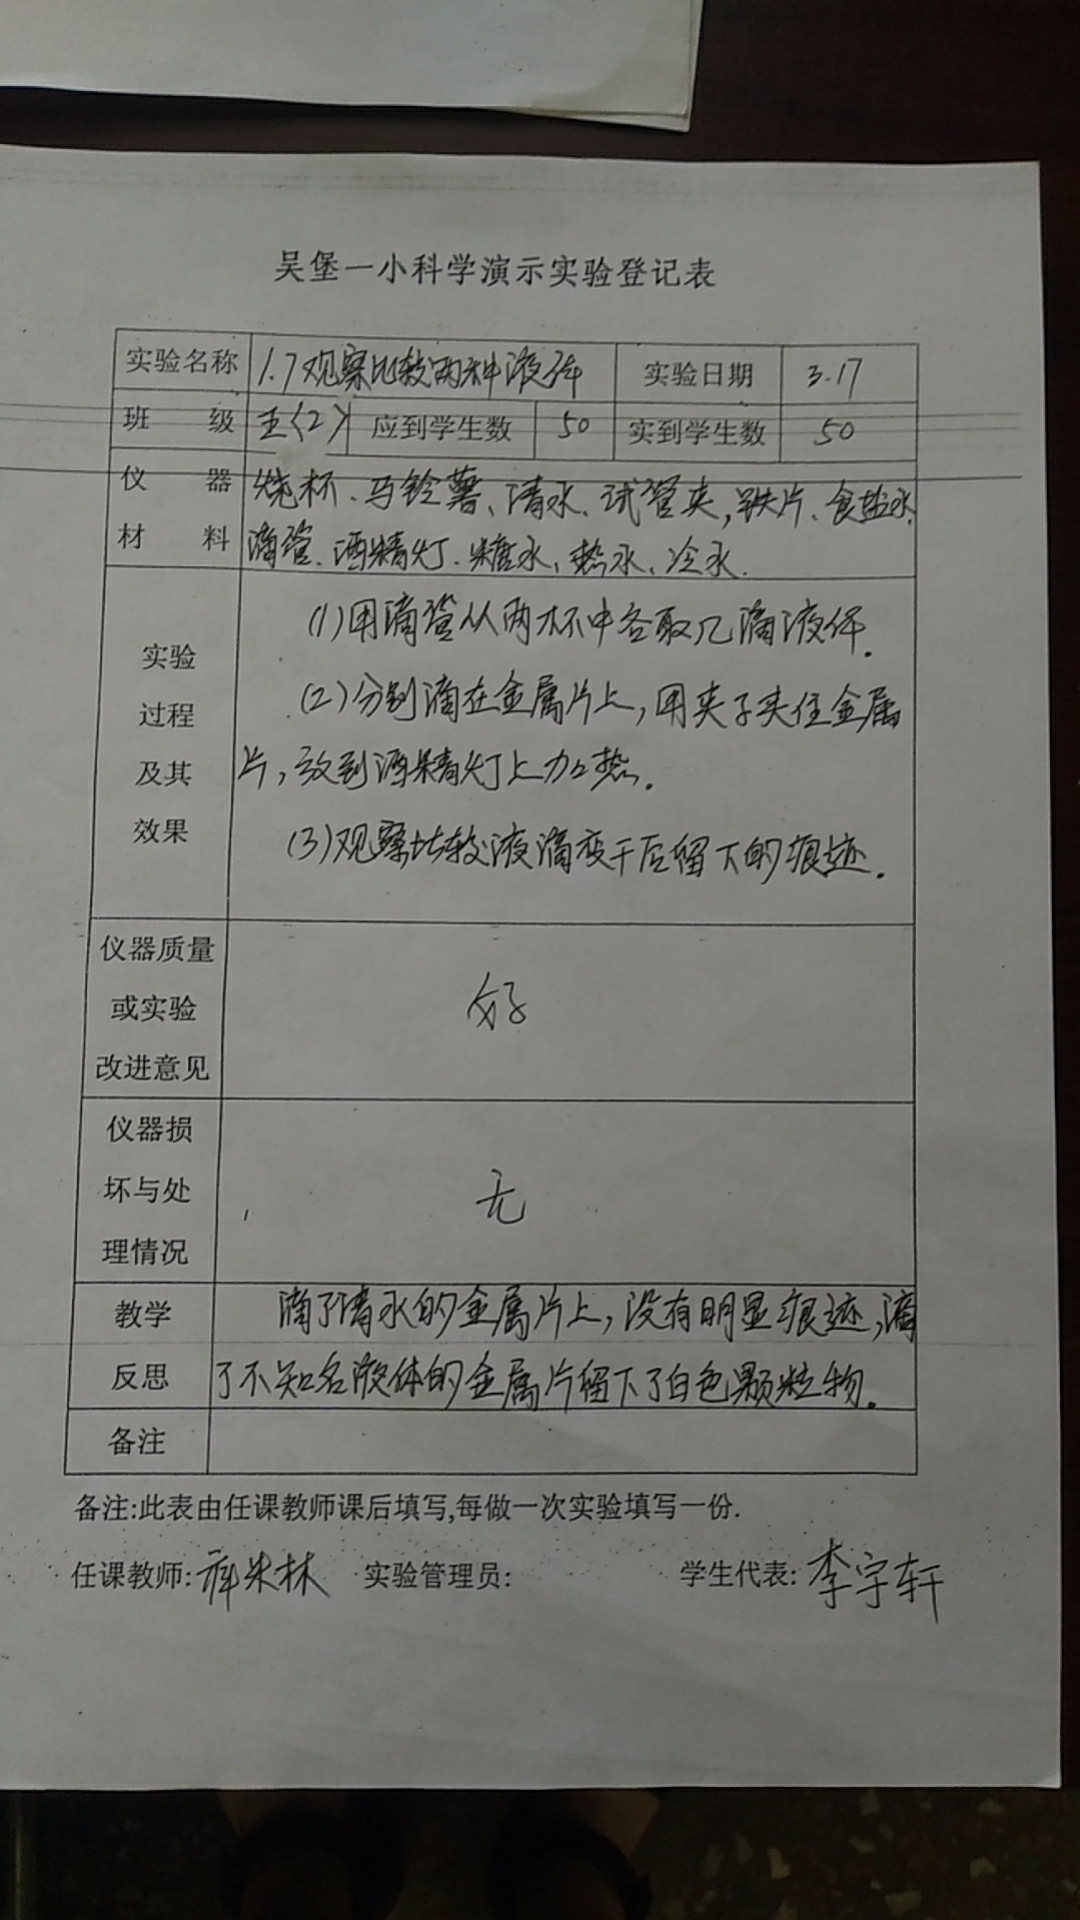 吴堡一小科学演示实验登记表
实验名称 1.7观察比较两种液体 实验日期 3.17
班 级 五(2) 应到学生数 50 实到学生数 50
仪 器 烧杯、马铃薯、清水、试管夹,铁片、食盐水
材 料 滴管、酒精灯、糖水、热水、冷水.
实验
过程
及其
效果
(1)用滴管从两杯中各取几滴液体.
(2)分别滴在金属片上,用夹子夹住金属
片,放到酒精灯上加热.
(3)观察比较液滴变干后留下的痕迹.
仪器质量
或实验
改进意见
好
仪器损
坏与处
理情况
无
教学 滴了清水的金属片上,没有明显痕迹,滴
反思 了不知名液体的金属片留下了白色颗粒物.
备注
备注:此表由任课教师课后填写,每做一次实验填写一份.
任课教师: 实验管理员: 学生代表:李宇轩